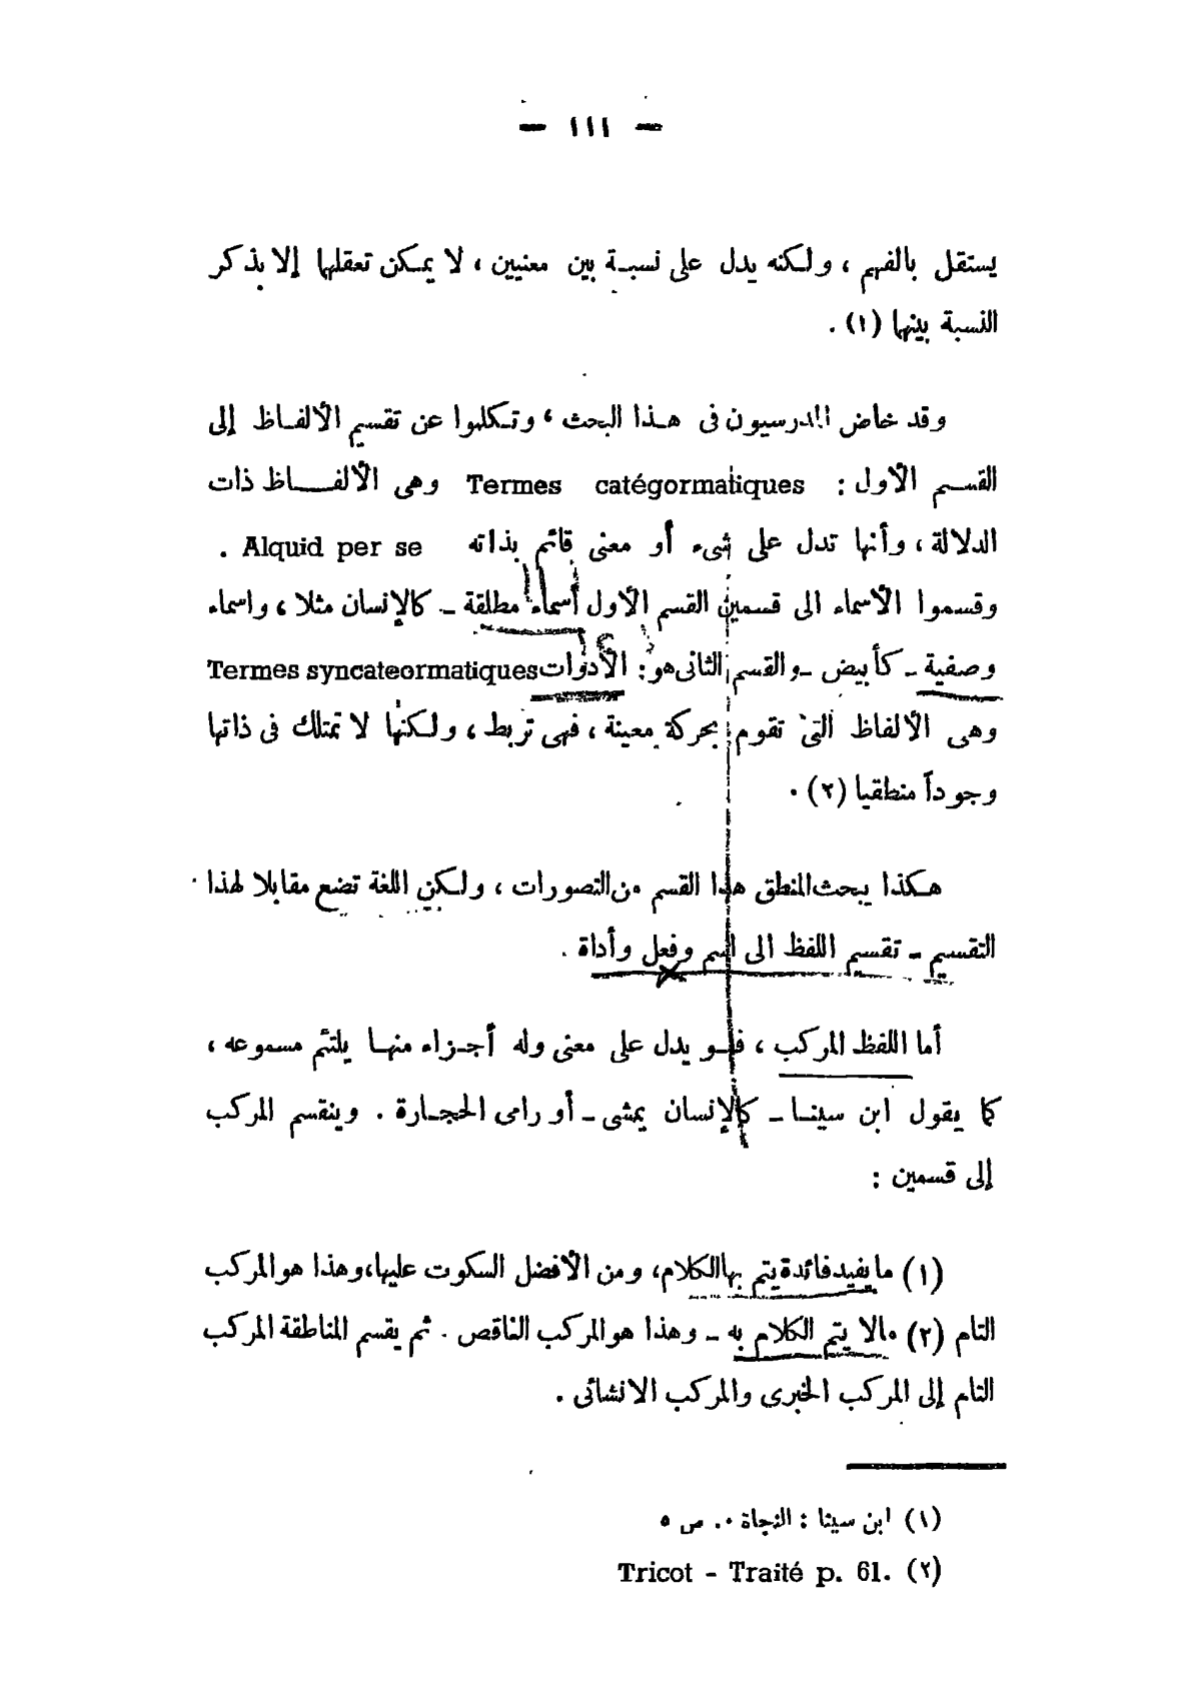 — ١١١ —
يستقل بالفهم ، ولكنه يدل على نسبة بين معنيين ، لا يمكن تعقلها إلا بذكر
النسبة بينها (١) .
وقد خاض المدرسيون فى هذا البحث ، وتكلموا عن تقسيم الألفاظ إلى
القسم الأول : Termes catégormatiques وهى الألفاظ ذات
الدلالة ، وأنها تدل على شىء أو معنى قائم بذاته Alquid per se .
وقسموا الأسماء الى قسمين القسم الأول أسماء مطلقة ـ كالإنسان مثلا ، واسماء
وصفية ـ كأبيض ـ والقسم الثانى هو : الأدوات Termes syncateormatiques
وهى الألفاظ التى تقوم بحركة معينة ، فهى تربط ، ولكنها لا تمتلك فى ذاتها
وجوداً منطقيا (٢) .
هكذا يبحث المنطق هذا القسم من التصورات ، ولكن اللغة تضع مقابلا لهذا
التقسيم ـ تقسيم اللفظ الى اسم وفعل وأداة .
أما اللفظ المركب ، فهو يدل على معنى وله أجزاء منها يلتئم مسموعه ،
كما يقول ابن سينا ـ كالإنسان يمشى ـ أو رامى الحجارة . وينقسم المركب
إلى قسمين :
(١) ما يفيد فائدة يتم بها الكلام ، ومن الأفضل السكوت عليها ، وهذا هو المركب
التام (٢) مالا يتم الكلام به ـ وهذا هو المركب الناقص . ثم يقسم المناطقة المركب
التام إلى المركب الخبرى والمركب الانشائى .
(١) ابن سينا : النجاة .. ص ٥
(٢) Tricot - Traité p. 61.